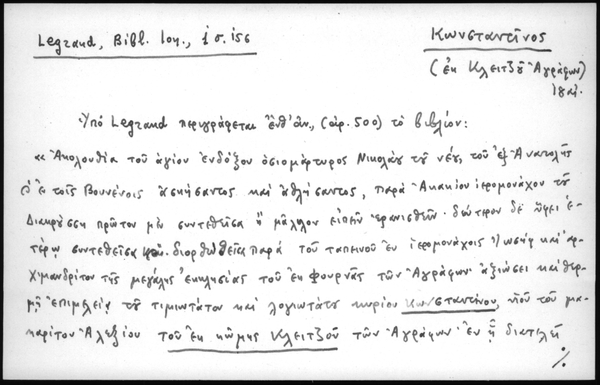 Legrand, Bibl. Ion., 1 σ. 156
Κωνσταντῖνος
(ἐκ Κλειτζοῦ Ἀγράφων)
Ὑπὸ Legrand περιγράφεται ἔνθ' ἀν., (ἀρ. 500) τὸ βιβλίον:
« Ἀκολουθία τοῦ ἁγίου ἐνδόξου ὁσιομάρτυρος Νικολάου τοῦ νέου, τοῦ ἐξ Ἀνατολῆς
ἐν τοῖς Βουνένοις ἀσκήσαντος καὶ ἀθλήσαντος, παρὰ Ἀκακίου ἱερομονάχου τοῦ
Διακρούση πρῶτον μὲν συντεθεῖσα ἢ μᾶλλον εἰπεῖν ἐρανισθεῖσα· δεύτερον δὲ ἑ-
τέρῳ συντεθεῖσα καὶ διορθωθεῖσα παρὰ τοῦ ταπεινοῦ ἐν ἱερομονάχοις Ἰωσὴφ καὶ ἀρ-
χιμανδρίτου τῆς μεγάλης ἐκκλησίας τοῦ ἐκ Φουρνᾶς τῶν Ἀγράφων· ἀξιώσει καὶ θερ-
μῇ ἐπιμελείᾳ τοῦ τιμιωτάτου καὶ λογιωτάτου κυρίου Κωνσταντίνου, υἱοῦ τοῦ μα-
καρίτου Ἀλεξίου τοῦ ἐκ κώμης Κλειτζοῦ τῶν Ἀγράφων· ἐν ᾗ διατελῇ
./.